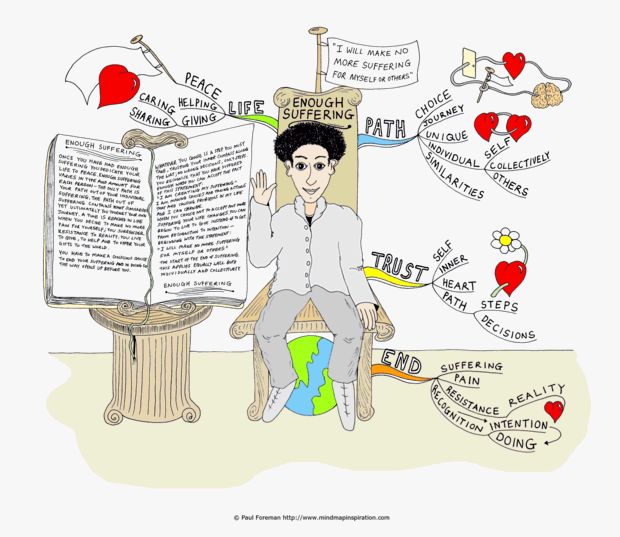 "I WILL MAKE NO
MORE SUFFERING
FOR MYSELF OR OTHERS"
ENOUGH
SUFFERING
LIFE
PEACE
HELPING
GIVING
CARING
SHARING
PATH
CHOICE
JOURNEY
UNIQUE
INDIVIDUAL
SIMILARITIES
SELF
COLLECTIVELY
OTHERS
TRUST
SELF
INNER
HEART
PATH
STEPS
DECISIONS
END
SUFFERING
PAIN
RESISTANCE
REALITY
RECOGNITION
INTENTION
DOING
ENOUGH SUFFERING
ONCE YOU HAVE HAD ENOUGH
SUFFERING YOU DEDICATE YOUR
LIFE TO PEACE. ENOUGH SUFFERING
VARIES IN TYPE AND AMOUNT FOR
EACH PERSON - THE ONLY PATH IS
YOUR PATH OUT OF YOUR INDIVIDUAL
SUFFERING. THE PATH OUT OF
SUFFERING CONTAINS MANY SIMILARITIES
YET ULTIMATELY YOU
JOURNEY. A TIME IS REACHED IN LIFE
WHEN YOU DECIDE TO MAKE NO MORE
PAIN FOR YOURSELF; YOU SURRENDER
RESISTANCE TO REALITY. YOU LIVE
TO GIVE, TO HELP AND TO OFFER YOUR
GIFTS TO THE WORLD.
YOU HAVE TO MAKE A CONSCIOUS CHOICE
TO END YOUR SUFFERING AND IN DOING SO
THE WAY OPENS UP BEFORE YOU.
WHATEVER YOU CHOOSE IS A STEP YOU MUST
TAKE; TRUST
"I AM CREATING MY SUFFERING -
I AM MAKING CHOICES AND TAKING ACTIONS
THAT ARE CAUSING PROBLEMS IN MY LIFE
AND I CAN CHANGE."
WHEN YOU CHOOSE NOT TO ACCEPT ANY MORE
SUFFERING YOUR LIFE CHANGES. YOU CAN
BEGIN TO LIVE TO GIVE INSTEAD OF TO GET
FROM RECOGNITION TO INTENTION -
BEGINNING WITH THE STATEMENT:
"I WILL MAKE NO MORE SUFFERING
FOR MYSELF OR OTHERS"
THE START IS THE END OF SUFFERING
THIS APPLIES EQUALLY WELL BOTH
INDIVIDUALLY AND COLLECTIVELY
ENOUGH SUFFERING
© Paul Foreman http://www.mindmapinspiration.com